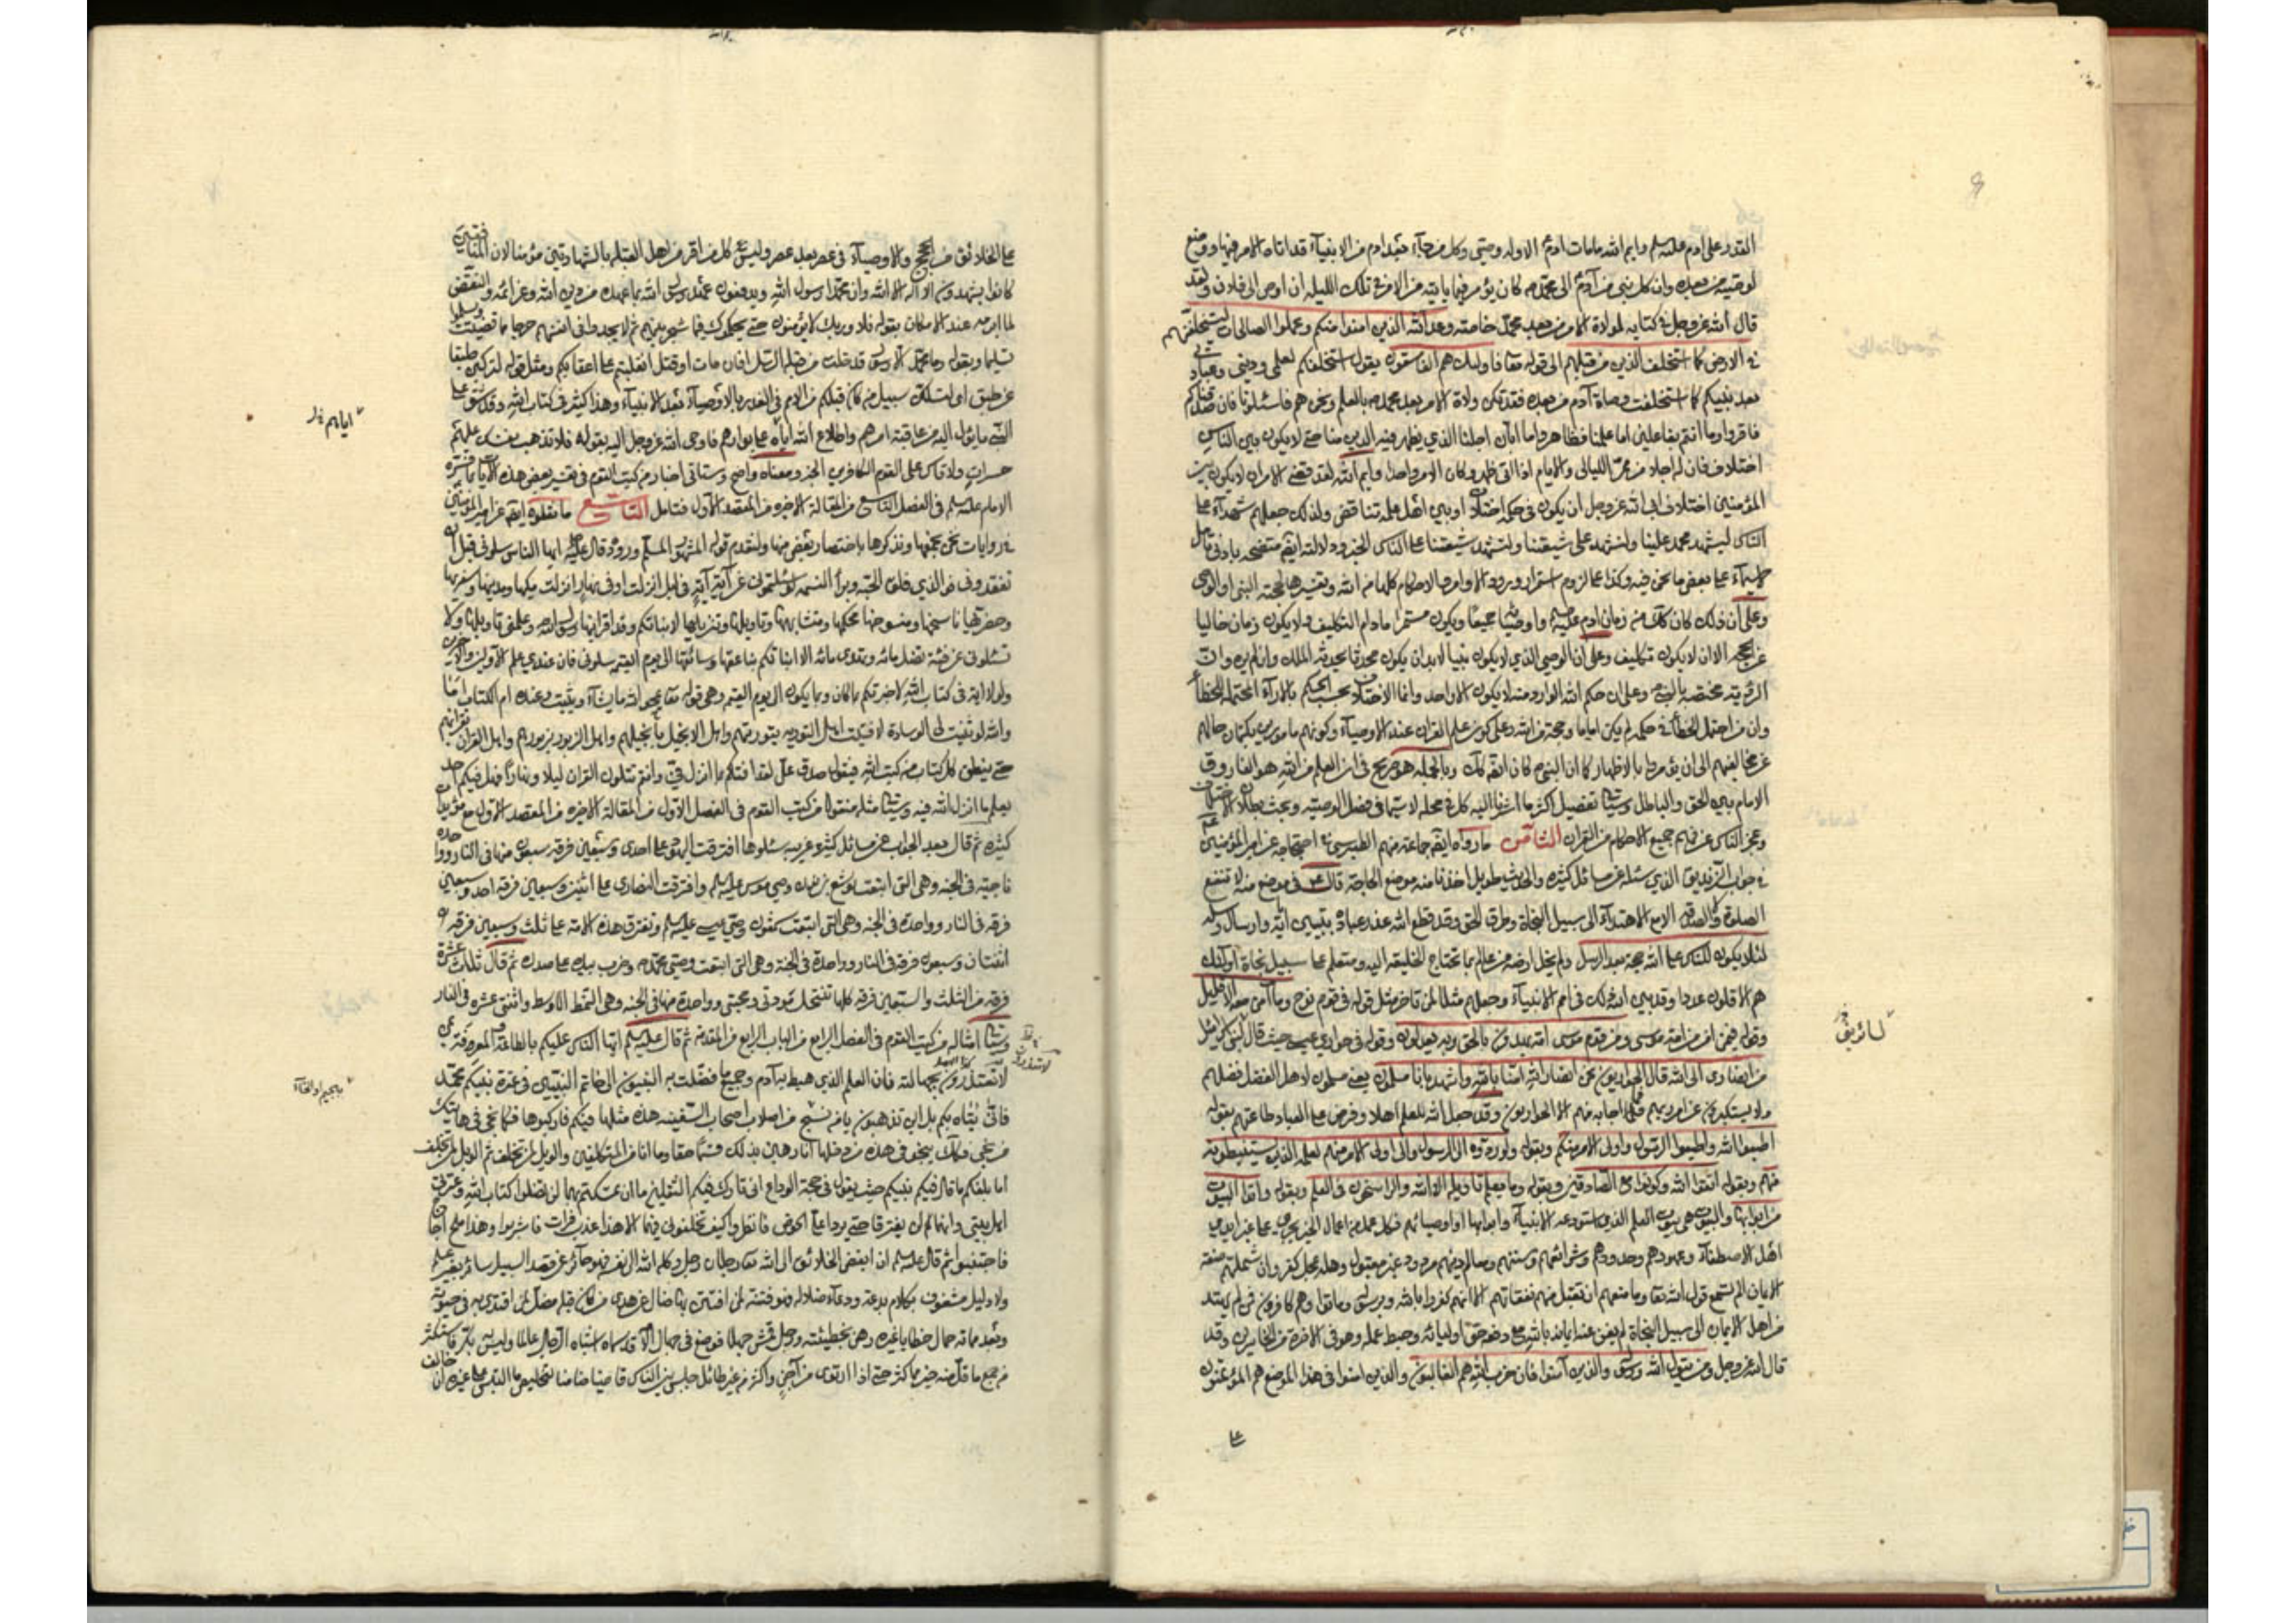 القدر على ادم عليه السلم وايم الله مامات ادم الا وله وصي وكل من جاء بعد ادم من الانبياء قد اتاه الامر فيها ووضع
لوصيه من بعده وان كل نبي من آدم الى محمد ص كان يؤمر فيما ياتيه من الامر في تلك الليلة ان اوص الى فلان ولقد
قال الله عز وجل في كتابه لولاة الامر من بعد محمد خاصته وعد الله الذين امنوا منكم وعملوا الصالحات ليستخلفنهم
في الارض كما استخلف الذين من قبلهم الى قوله تعا فاولئك هم الفاسقون يقول استخلفكم لعلمي وديني وعبادتي
بعد نبيكم كما استخلفت وصاة آدم من بعده فقد مكن ولاة الامر بعد محمد ص بالعلم ونحن هم فاسئلونا فان صدقناكم
فاقروا وما انتم بفاعلين اما علمنا فظاهر واما ابان اجلنا الذي يظهر فيه الدين منا حتى لا يكون بين الناس
اختلاف فان له اجلا من ممر الليالي والايام اذا اتى ظهر وكان الامر واحدا وايم الله لقد قضي الامر ان لا يكون بين
المؤمنين اختلاف ابى الله عز وجل ان يكون في حكمه اختلاف او بين اهل علمه تناقض ولذلك جعلهم شهداء على
الناس ليشهد محمد علينا ولنشهد على شيعتنا ولتشهد شيعتنا على الناس الخبر ودلالته ايضا متضحة بادنى تامل
على بعض ما نحن فيه وكذا على لزوم استمرار ورود الاوامر والاحكام كلها من الله وتفسيرها لحجته النبي او الوصي
وعلى ان ذلك كان كك منذ زمان ادم عليه السلم واوصيائه جميعا ويكون مستمرا مادام التكليف ولا يكون زمان خاليا
عن الحجة الا ان لا يكون تكليف وعلى ان الوصي الذي لا يكون نبيا لابد ان يكون محدثا يحدثه الملك وان لم يره وان
الرؤية مختصة بالنبي وعلى ان حكم الله الوارد منه لا يكون الا واحد وانما الاختلاف بحسب الحكم بالاراء المحتملة للخطأ
وان من احتمل الخطأ في حكمه لم يكن اماما وحجة من الله وعلى كون علم القران عند الاوصياء وكونهم مامورين بكتمان حالهم
عن مخالفيهم الى ان يؤمروا بالاظهار كما ان النبي ص كان ايضا كك وبالجملة هو صريح في ان العلم من الله هو الفاروق
الامام بين الحق والباطل وسياتي تفصيل اكثر ما اشرنا اليه كل في محله لا سيما في فصل الوصية وبحث بطلان الاجتهاد
وعجز الناس عن فهم جميع الاحكام من القران الثامن ما رواه ايضا جماعة منهم الطبرسي في احتجاجه عن امير المؤمنين
في جواب الزنديق الذي سئله عن مسائل كثيرة والحديث طويل اخذنا منه موضع الحاجة قال ع في موضع منه لا تنفع
الصلوة والصدقة الا مع الاهتداء الى سبيل النجاة وطرق الحق وقد قطع الله عذر عباده بتبيين آياته وارسال رسله
لئلا يكون للناس على الله حجة بعد الرسل ولم يخل ارضه من عالم بما تحتاج الخليقة اليه ومتعلم على سبيل نجاة اولئك
هم الاقلون عددا وقد بين الله ذلك في امم الانبياء وجعلهم مثلا لمن تاخر مثل قوله في قوم نوح وما آمن معه الا قليل
وقوله فيمن امن من امة موسى ومن قوم موسى امة يهدون بالحق وبه يعدلون وقوله في حواري عيسى حيث قال لبني اسرائيل
من انصاري الى الله قال الحواريون نحن انصار الله آمنا بالله واشهد بانا مسلمون يعني مسلمون لاهل الفضل فضلهم
ولا يستكبرون عن امر ربهم فما اجابه منهم الا الحواريون وقد جعل الله للعلم اهلا وفرض على العباد طاعتهم بقوله
اطيعوا الله واطيعوا الرسول واولي الامر منكم وبقوله ولو ردوه الى الرسول والى اولي الامر منهم لعلمه الذين يستنبطونه
منهم وبقوله اتقوا الله وكونوا مع الصادقين وبقوله وما يعلم تاويله الا الله والراسخون في العلم وبقوله واتوا البيوت
من ابوابها والبيوت هي بيوت العلم الذي استودعه الانبياء وابوابها اوصيائهم فكل عمل من اعمال الخير يجري على غير ايدي
اهل الاصطفاء وعهودهم وحدودهم وشرائعهم وسننهم ومعالم دينهم مردود غير مقبول واهله بمحل كفر وان شملتهم صفة
الايمان الم تسمع قول الله تعا وما منعهم ان تقبل منهم نفقاتهم الا انهم كفروا بالله وبرسوله وماتوا وهم كافرون فمن لم يهتد
من اهل الايمان الى سبيل النجاة لم يغن عنه ايمانه بالله مع دفع حق اوليائه وحبط عمله وهو في الاخرة من الخاسرين وقد
قال الله عز وجل ومن يتول الله ورسوله والذين آمنوا فان حزب الله هم الغالبون والذين امنوا في هذا الموضع هم المؤتمنون
على
على الخلائق من الحجج والاوصياء في عصر بعد عصر وليس كل من اقر من اهل القبلة بالشهادتين مؤمنا لان المنافقين
كانوا يشهدون ان لا اله الا الله وان محمدا رسول الله ويدفعون عهد رسول الله بما عهد من دين الله وعزائمه والنقض
لما ابرمه عند الامكان بقوله فلا وربك لا يؤمنون حتى يحكموك فيما شجر بينهم ثم لا يجدوا في انفسهم حرجا مما قضيت ويسلموا
تسليما وبقوله وما محمد الا رسول قد خلت من قبله الرسل افان مات او قتل انقلبتم على اعقابكم ومثل قوله لتركبن طبقا
عن طبق اي لتسلكن سبيل من كان قبلكم من الامم في الغدر بالاوصياء بعد الانبياء وهذا كثير في كتاب الله وقد شق على
النبي ما يؤل اليه من عاقبة امرهم واطلاع الله اياه على بوارهم فاوحى الله عز وجل اليه بقوله فلا تذهب نفسك عليهم
حسرات ولا تاس على القوم الكافرين الخبر ومعناه واضح وستاتي اخبار من كتب القوم في تفسير بعض هذه الآيات بما فسره
الامام عليه السلم في الفصل التاسع من المقالة الاخيرة من المقصد الاول فتامل التاسع ما نقلوه ايضا عن امير المؤمنين
في روايات نحن نجمعها ونذكرها باختصار بعض منها ولنقدم قوله المشهور المسلم وروده قال عليه ايها الناس سلوني قبل ان
تفقدوني فوالذي فلق الحبة وبرأ النسمة لو سئلتموني عن آية آية في ليل انزلت او في نهار انزلت مكيها ومدنيها وسفريها
وحضريها ناسخها ومنسوخها محكمها ومتشابهها وتاويلها وتنزيلها لانبأتكم وقد اقرانيها رسول الله ص وعلمني تاويلها ولا
تسئلوني عن فئة تضل مائة وتهدى مائة الا انباتكم بناعقها وسائقها الى يوم القيمة سلوني فان عندي علم الاولين والآخرين
ولولا اية في كتاب الله لاخبرتكم بما كان وبما يكون الى يوم القيمة وهي قوله تعا يمحو الله ما يشاء ويثبت وعنده ام الكتاب اما
والله لو ثنيت لي الوسادة لافتيت اهل التورية بتوريتهم واهل الانجيل بانجيلهم واهل الزبور بزبورهم واهل القران بقرانهم
حتى ينطق كل كتاب من كتب الله فيقول صدق علي لقد افتاكم بما انزل في وانتم تتلون القران ليلا ونهارا فهل فيكم احد
يعلم ما انزل الله فيه وسياتي مثله منقولا من كتب القوم في الفصل الاول من المقالة الاخيرة من المقصد الاول مع مؤيدات
كثيرة ثم قال بعد الجواب عن مسائل كثيرة غريبة سئلوها افترقت اليهود على احدى وسبعين فرقة سبعون منها في النار وواحدة
ناجية في الجنة وهي التي اتبعت يوشع بن نون وصي موسى عليه السلم وافترقت النصارى على اثنين وسبعين فرقة احد وسبعين
فرقة في النار وواحدة في الجنة وهي التي اتبعت شمعون وصي عيسى عليه السلم وتفترق هذه الامة على ثلث وسبعين فرقة
اثنتان وسبعون فرقة في النار وواحدة في الجنة وهي التي اتبعت وصي محمد ص وضرب بيده على صدره ثم قال ثلث عشرة
فرقة من الثلث والسبعين فرقة كلها تنتحل مودتي ومحبتي وواحدة منها في الجنة وهي النمط الاوسط واثنتي عشرة في النار
وسياتي امثاله من كتب القوم في الفصل الرابع من الباب الرابع من المقدمة ثم قال عليه السلم ايها الناس عليكم بالطاعة والمعرفة بمن
لا تعتذرون بجهالته فان العلم الذي هبط به آدم وجميع ما فضلت به النبيون الى خاتم النبيين في عترة نبيكم محمد
فاين يتاه بكم بل اين تذهبون يا من نسخ من اصلاب اصحاب السفينة هذه مثلها فيكم فاركبوها فكما نجى في هاتيك
من نجى فكذلك ينجو في هذه من دخلها انا رهين بذلك قسما حقا وما انا من المتكلفين والويل لمن تخلف ثم الويل لمن تخلف
اما بلغكم ما قال فيكم نبيكم حيث يقول في حجة الوداع اني تارك فيكم الثقلين ما ان تمسكتم بهما لن تضلوا كتاب الله وعترتي
اهل بيتي وانهما لن يفترقا حتى يردا على الحوض فانظروا كيف تخلفوني فيهما الا هذا عذب فرات فاشربوا وهذا ملح اجاج
فاجتنبوا ثم قال عليه السلم ان ابغض الخلائق الى الله تعا رجلان رجل وكله الله الى نفسه فهو جائر عن قصد السبيل سائر بغير علم
ولا دليل مشغوف بكلام بدعة ودعاء ضلالة فهو فتنة لمن افتتن به ضال عن هدى من كان قبله مضل لمن اقتدى به في حيوته
وبعد مماته حمال خطايا غيره رهن بخطيئته ورجل قمش جهلا فوضع في جهال الامة قد سماه اشباه الرجال عالما وليس به بكر فاستكثر
من جمع ما قل منه خير مما كثر حتى اذا ارتوى من آجن واكثر من غير طائل جلس بين الناس قاضيا ضامنا لتخليص ما التبس على غيره ان خالف